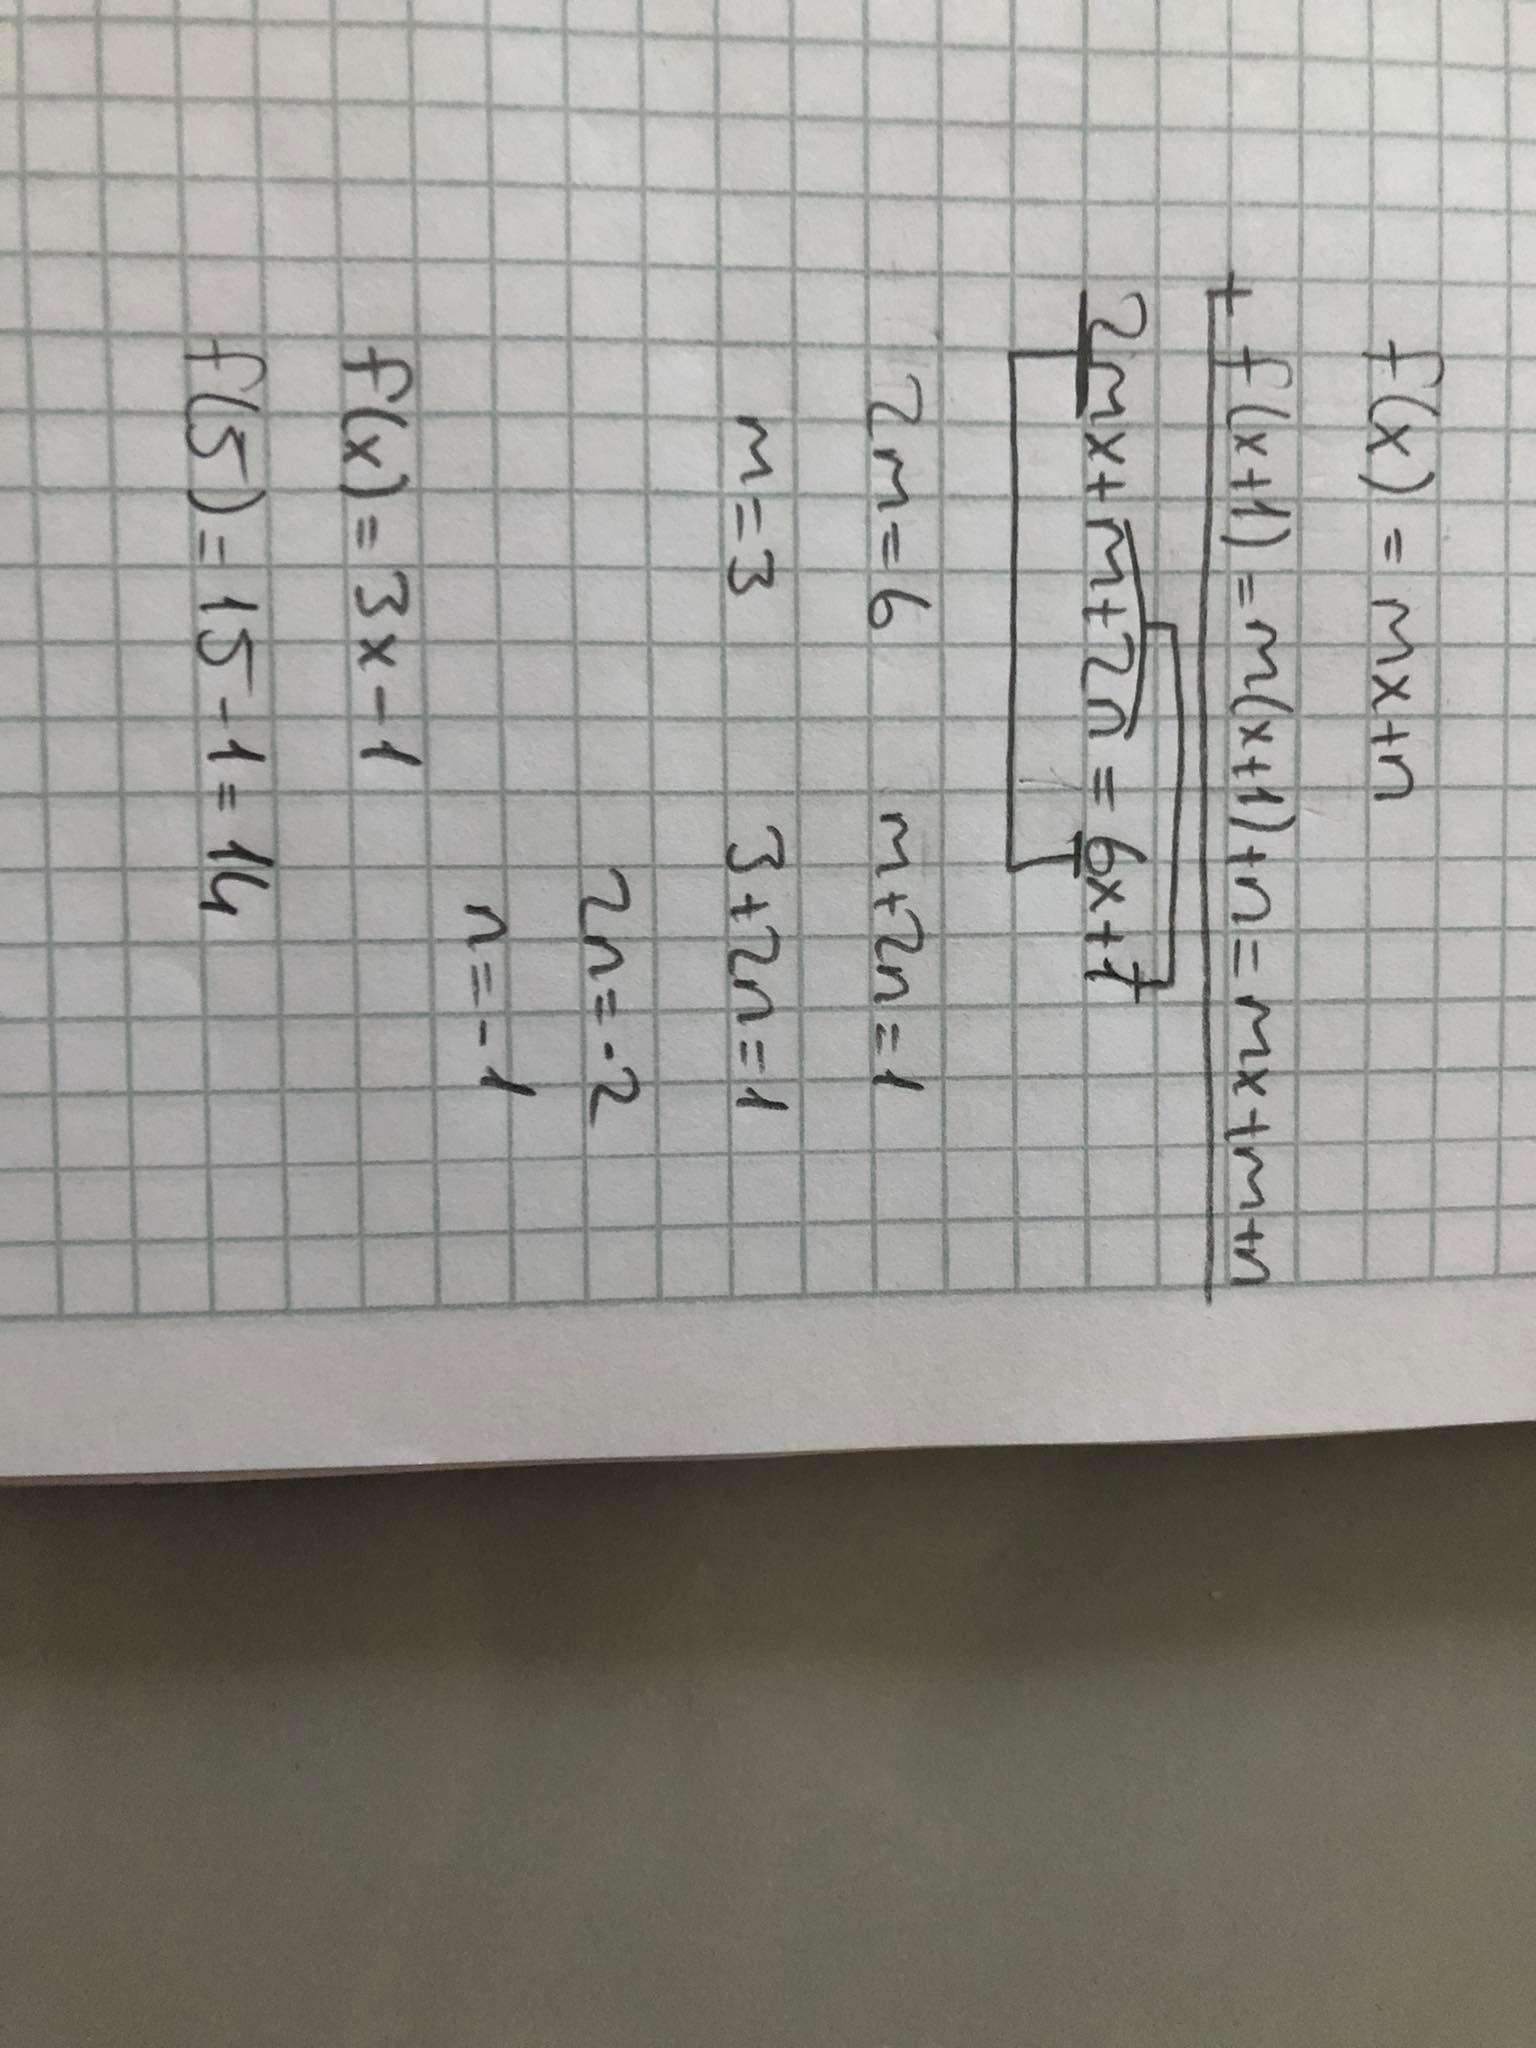 f(x) = mx+n
+ f(x+1) = m(x+1)+n = mx+m+n
2mx+m+2n = 6x+1
2m=6 m+2n=1
m=3 3+2n=1
2n=-2
n=-1
f(x)=3x-1
f(5)=15-1=14